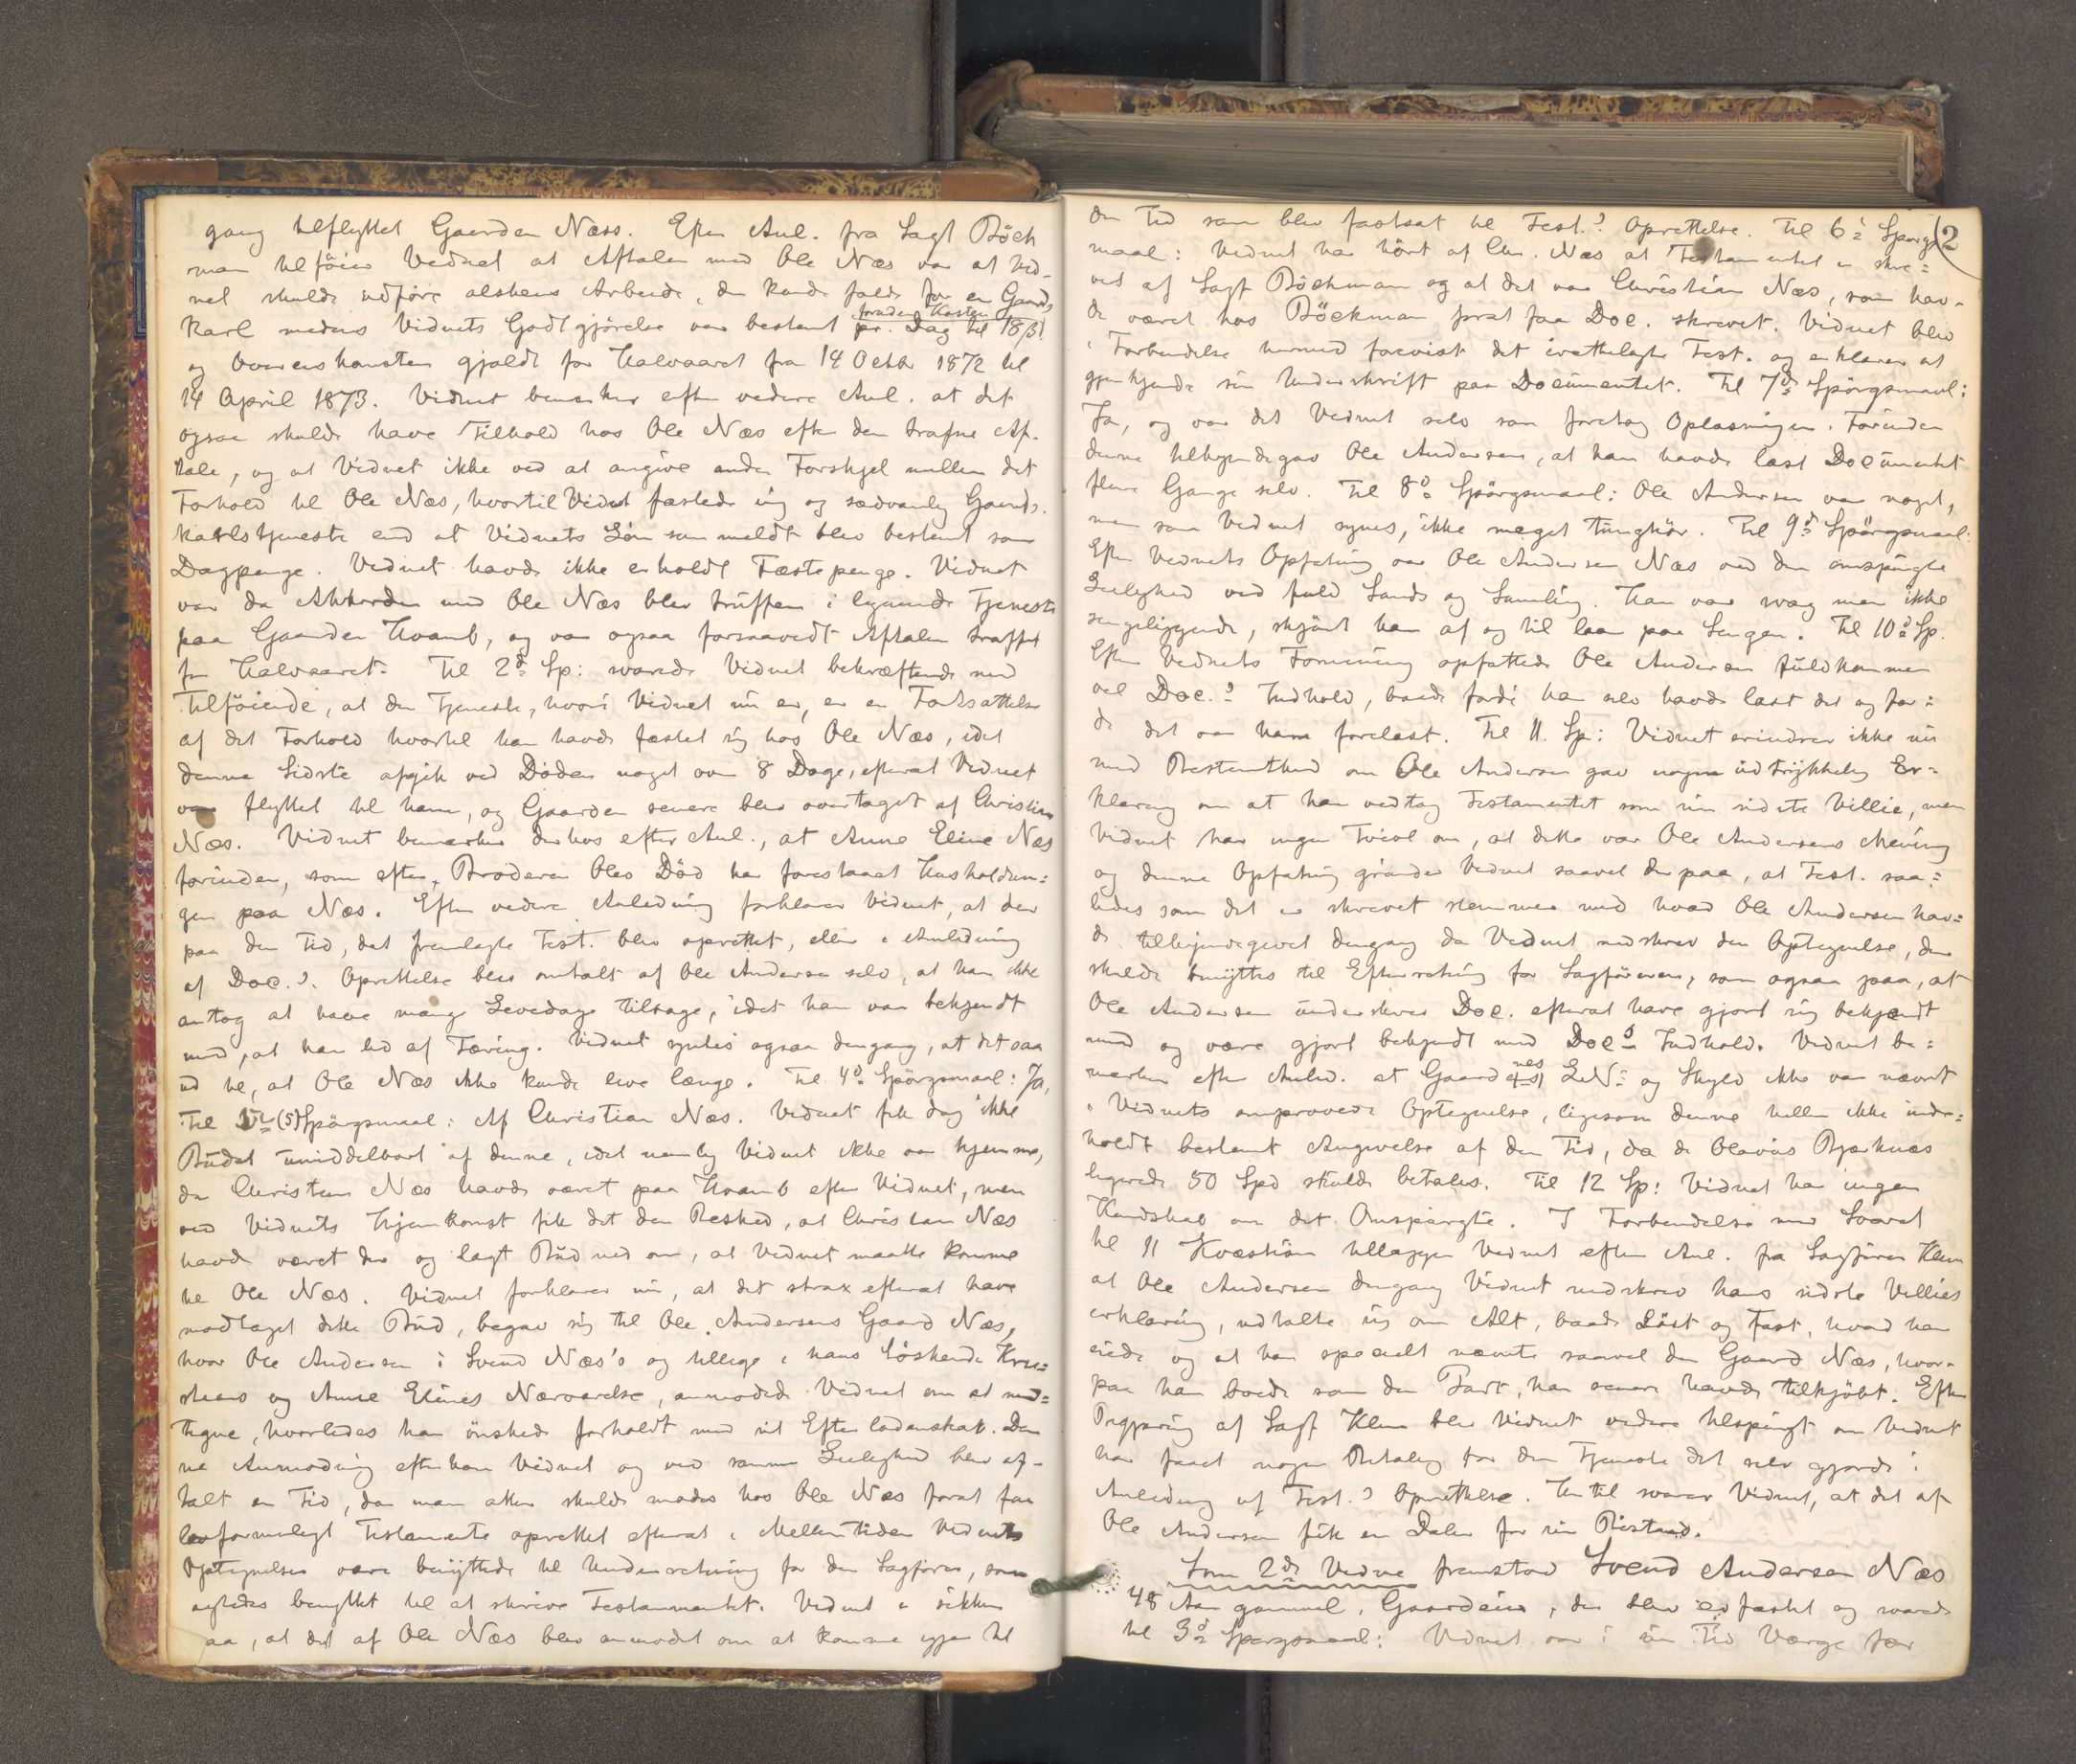 gang tilflyttet Gaarden Næss. Efter Anl. fra Sagf Böck
man tilföier Vidnet at Aftalen med Ole Næs var at Vid-
net skulde udföre alskens Arbeide, der kunde falde for en Gaards
foruden Kosten
Karl medens Vidnets Godtgjörelse var bestemt pr. Dag til 18 β
og Overenskomsten gjaldt for Halvaaret fra 14 Octbr 1872 til
14 April 1873. Vidnet bemærker efter videre Anl. at det
ogsaa skulde have Tilhold hos Ole Næs efter den trufne Af-
tale, og at Vidnet ikke ved at angive anden Forskjel mellem det
Forhold til Ole Næs, hvortil Vidnet fæstede sig og sædvanlig Gaards-
karlstjeneste end at Vidnets Lön som meldt blev bestemt som
Dagpenge. Vidnet havde ikke erholdt Fæstepenge. Vidnet
var da Akkorden med Ole Næs blev truffen i lignende Tjeneste
paa Gaarden Hvamb, og var ogsaa forsaavidt Aftalen truffet
for Halvaaret. Til 2d Sp: svarede Vidnet bekræftende med
Tilföiende, at den Tjeneste, hvori Vidnet nu er, er en Fortsættelse
af det Forhold hvortil han havde fæstet sig hos Ole Næs, idet
denne Sidste afgik ved Döden noget over 8 Dage, efterat Vidnet
var flyttet til ham, og Gaarden senere blev overtaget af Christian
Næs. Vidnet bemærker derhos efter Anl., at Anne Eline Næs
forinden, som efter Broderen Oles Död har forestaaet Husholdnin-
gen paa Næs. Efter videre Anledning forklarer Vidnet, at der
paa den Tid, det fremlagte Test. blev oprettet, eller i Anledning
af Doc.s. Oprettelse blev omtalt af Ole Andersen selv, at han ikke
antog at have mange Levedage tilbage, idet han var bekjendt
med, at han led af Tæring. Vidnet syntes ogsaa dengang, at det saa
ud til, at Ole Næs ikke kunde leve længe. Til 4de Spörgsmaal: Ja,
Til 5te (5) Spörgsmaal: Af Christian Næs. Vidnet fik dog ikke
Budet umiddelbart af denne, idet nemlig Vidnet ikke var hjemme,
da Christian Næs havde været paa Hvamb efter Vidnet, men
ved Vidnets Hjemkomst fik det den Besked, at Christian Næs
havde været der og lagt Bud ned om, at Vidnet maatte komme
til Ole Næs. Vidnet forklarer nu, at det strax efterat have
modtaget dette Bud, begav sig til Ole Andersens Gaard Næs,
hvor Ole Andersen i Svend Næs's og tillige i hans Söskende Kri=
stians og Anne Elines Nærværelse, anmodede Vidnet om at ned=
tegne, hvorledes han önskede forholdt med sit Efterladenskab. Den
ne Anmodning efterkom Vidnet og ved samme Leilighed blev af-
talt en Tid, da man atter skulde mødes hos Ole Næs forat faa
lovformeligt Testamente oprettet efterat i Mellemtiden Vidnets
Optegnelser være benyttede til Underretning for den Sagförer, som
agtedes benyttet til at skrive Testamentet. Vidnet er sikker
paa, at det af Ole Næs blev anmodet om at komme igjen til
den Tid som blev fastsat til Test.s Oprettelse. Til 6te Spörgs
(2
maal: Vidnet har hört af Chr. Næs at Testamentet er skre=
vet af Sagf Böckman og at det var Christian Næs, som hav-
de været hos Böckman forat faa Doc. skrevet. Vidnet blev
i Forbindelse hermed forevist det irettelagte Test. og erklærer at
gjenkjende sin Underskrift paa Documentet. Til 7de Spörgsmaal:
Ja, og var det Vidnet selv som foretog Oplæsningen. Forinden
denne tilkjendegav Ole Andersen, at han havde læst Documentet
flere Gange selv. Til 8de Spörgsmaal: Ole Andersen var noget,
men som Vidnet synes, ikke meget tunghör. Til 9de Spörgsmaal:
Efter Vidnets Opfatning var Ole Andersen Næs ved den omspurgte
Leilighed ved fuld Sands og Samling. Han var svag men ikke
sengeliggende, skjönt han af og til laa paa Sengen. Til 10de Sp.
Efter Vidnets Formening opfattede Ole Andersen fuldkommen
vel Doc.s Indhold, baade fordi han selv havde læst det og for=
di det var ham forelæst. Til 11. Sp: Vidnet erindrer ikke nu
med Bestemthed om Ole Andersen gav nogen udtrykkelig Er=
klæring om at han vedtog Testamentet som sin sidste Villie, men
Vidnet har ingen Tvivl om, at dette var Ole Andersens Mening
og denne Opfatning grunder Vidnet saavel derpaa, at Test. saa=
ledes som det er skrevet stemmer med hvad Ole Andersen hav=
de tilkjendegivet dengang da Vidnet nedskrev den Optegnelse, der
skulde benyttes til Efterretning for Sagföreren, som ogsaa paa, at
Ole Andersen underskrev Doc. efterat have gjort sig bekjendt
med og være gjort bekjendt med Docs Indhold. Vidnet be=
mærker efter Anled. at Gaardenes LN: og Skyld ikke var nævnt
i Vidnets omprovede Optegnelse, ligesom denne heller ikke inde=
holdt bestemt Angivelse af den Tid, da de Olavus Bjerknæs
legerede 50 Spd skulde betales. Til 12 Sp: Vidnet har ingen
Kundskab om det Omspurgte. I Forbindelse med Svaret
til 11 Kvæstion tillægger Vidnet efter Anl. fra Sagförer Klem
at Ole Andersen dengang Vidnet nedskrev hans sidste Villies
erklæring, udtalte sig om Alt, baade Löst og Fast, hvad han
eiede og at han specielt nævnte saavel den Gaard Næs, hvor-
paa han boede som den Part, han senere havde tilkjöbt. Efter
Begjæring af Sagf Klem blev Vidnet videre tilspurgt om Vidnet
har faaet nogen Betaling for den Tjeneste det selv gjorde i
Anledning af Test.s Oprettelse. Hertil svarer Vidnet, at det af
Ole Andersen fik en Daler for sin Bistand.
Som 2det Vidne fremstod Svend Andersen Næs
48 Aar gammel, Gaardeier, der blev edfæstet og svarede
til 3de Spörgsmaal: Vidnet var i sin Tid Værge for